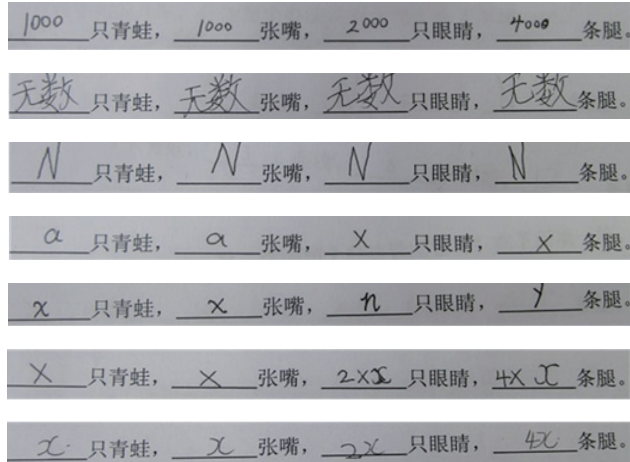 1000只青蛙，1000张嘴，2000只眼睛，4000条腿。
无数只青蛙，无数张嘴，无数只眼睛，无数条腿。
N只青蛙，N张嘴，N只眼睛，N条腿。
a只青蛙，a张嘴，x只眼睛，x条腿。
x只青蛙，x张嘴，n只眼睛，y条腿。
x只青蛙，x张嘴，2×x只眼睛，4×x条腿。
x只青蛙，x张嘴，2x只眼睛，4x条腿。